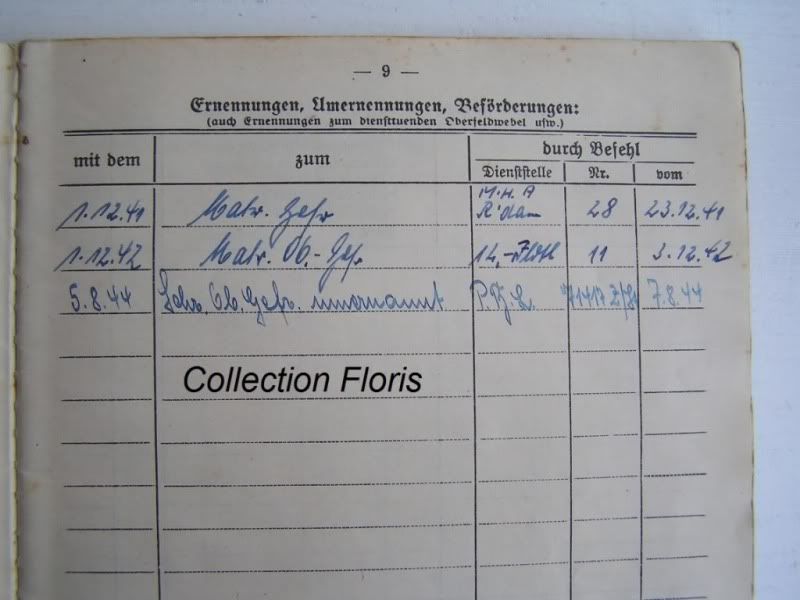 — 9 —
Ernennungen, Umernennungen, Beförderungen:
(auch Ernennungen zum diensttuenden Oberfeldwebel usw.)
mit dem zum durch Befehl
Dienststelle Nr. vom
M.H.A
1.12.41 Matr. Gefr R'dam 28 23.12.41
1.12.42 Matr. Ob.-Gef. 12.-Fltl 11 3.12.42
5.8.44 Schr. Ob. Gefr. umernannt 7.8.44
Collection Floris